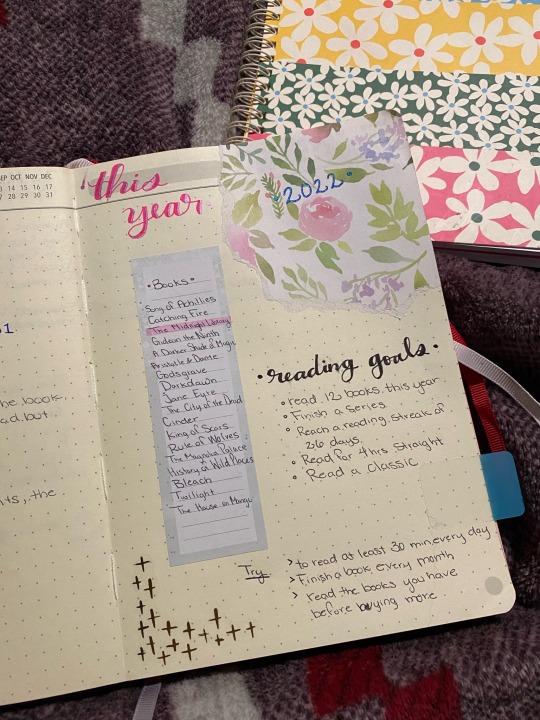 SEP OCT NOV DEC
13 14 15 16 17
27 28 29 30 31
this
year
2022
• Books •
Song of Achillies
Catching Fire
The Midnight Library
Gideon the Ninth
A Darker Shade of Magic
Aristotle & Dante
Godsgrave
Darkdawn
Jane Eyre
The City of the Dead
Cinder
King of Scars
Rule of Wolves
The Magnolia Palace
History of Wild Places
Bleach
Twilight
The House on Mango
• reading goals •
• read 12 books this year
• Finish a series
• Reach a reading streak of
26 days.
• Read for 4 hrs straight
• Read a classic
Try
> to read at least 30 min every day
> Finish a book every month
> read the books you have
before buying more
he book.
ad but
ts, the